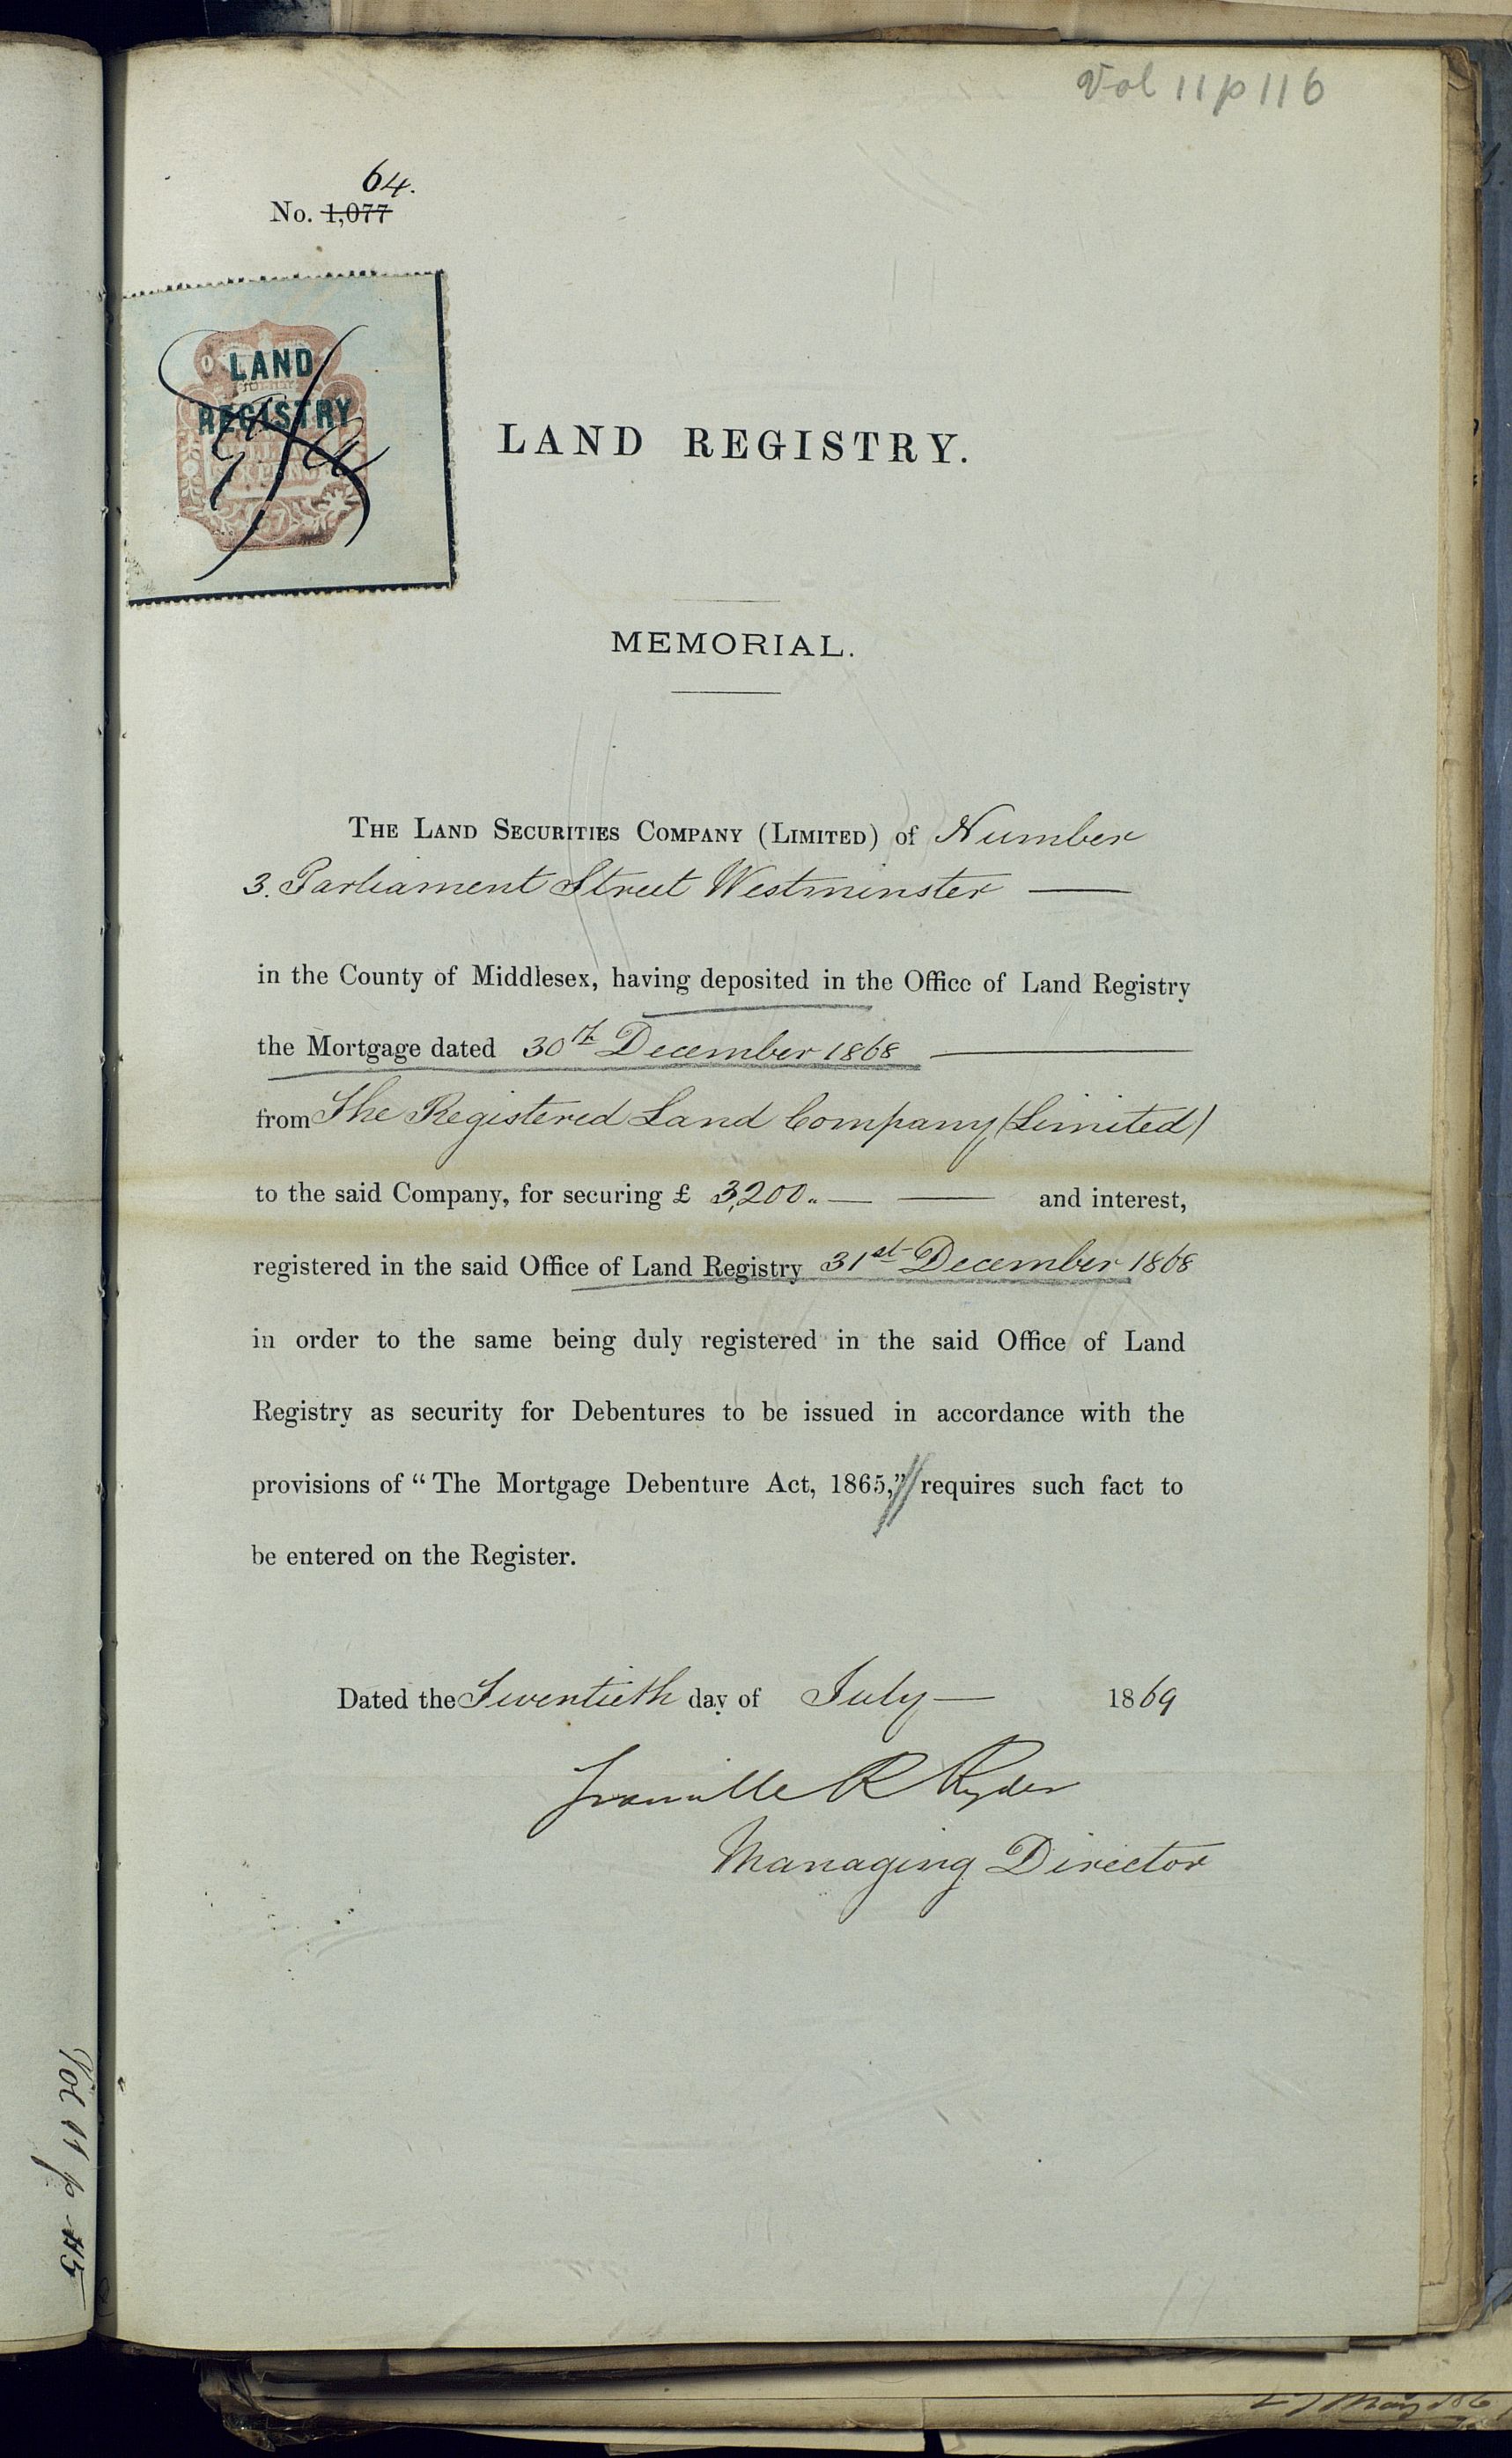 Vol 11 p 116
64.
No. 1,077
LAND
REGISTRY
LAND REGISTRY.
MEMORIAL.
THE LAND SECURITIES COMPANY (LIMITED) of Number
3. Parliament Street Westminster
in the County of Middlesex, having deposited in the Office of Land Registry
the Mortgage dated 30th December 1868
from The Registered Land Company (Limited)
to the said Company, for securing £ 3,200.. and interest,
registered in the said Office of Land Registry 31st December 1868
in order to the same being duly registered in the said Office of Land
Registry as security for Debentures to be issued in accordance with the
provisions of “The Mortgage Debenture Act, 1865,” requires such fact to
be entered on the Register.
Dated the Twentieth day of July 1869
Granville R Ryder
Managing Director
Vol 11 p 115